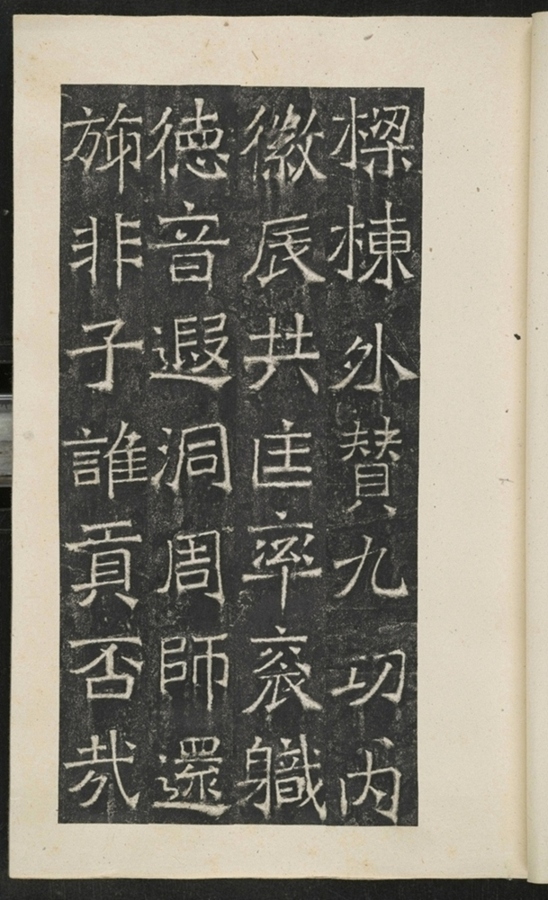 樑棟外贊九功内
徽辰共匡率衮軄
徳音遐洞周師還
旆非子誰貢否哉